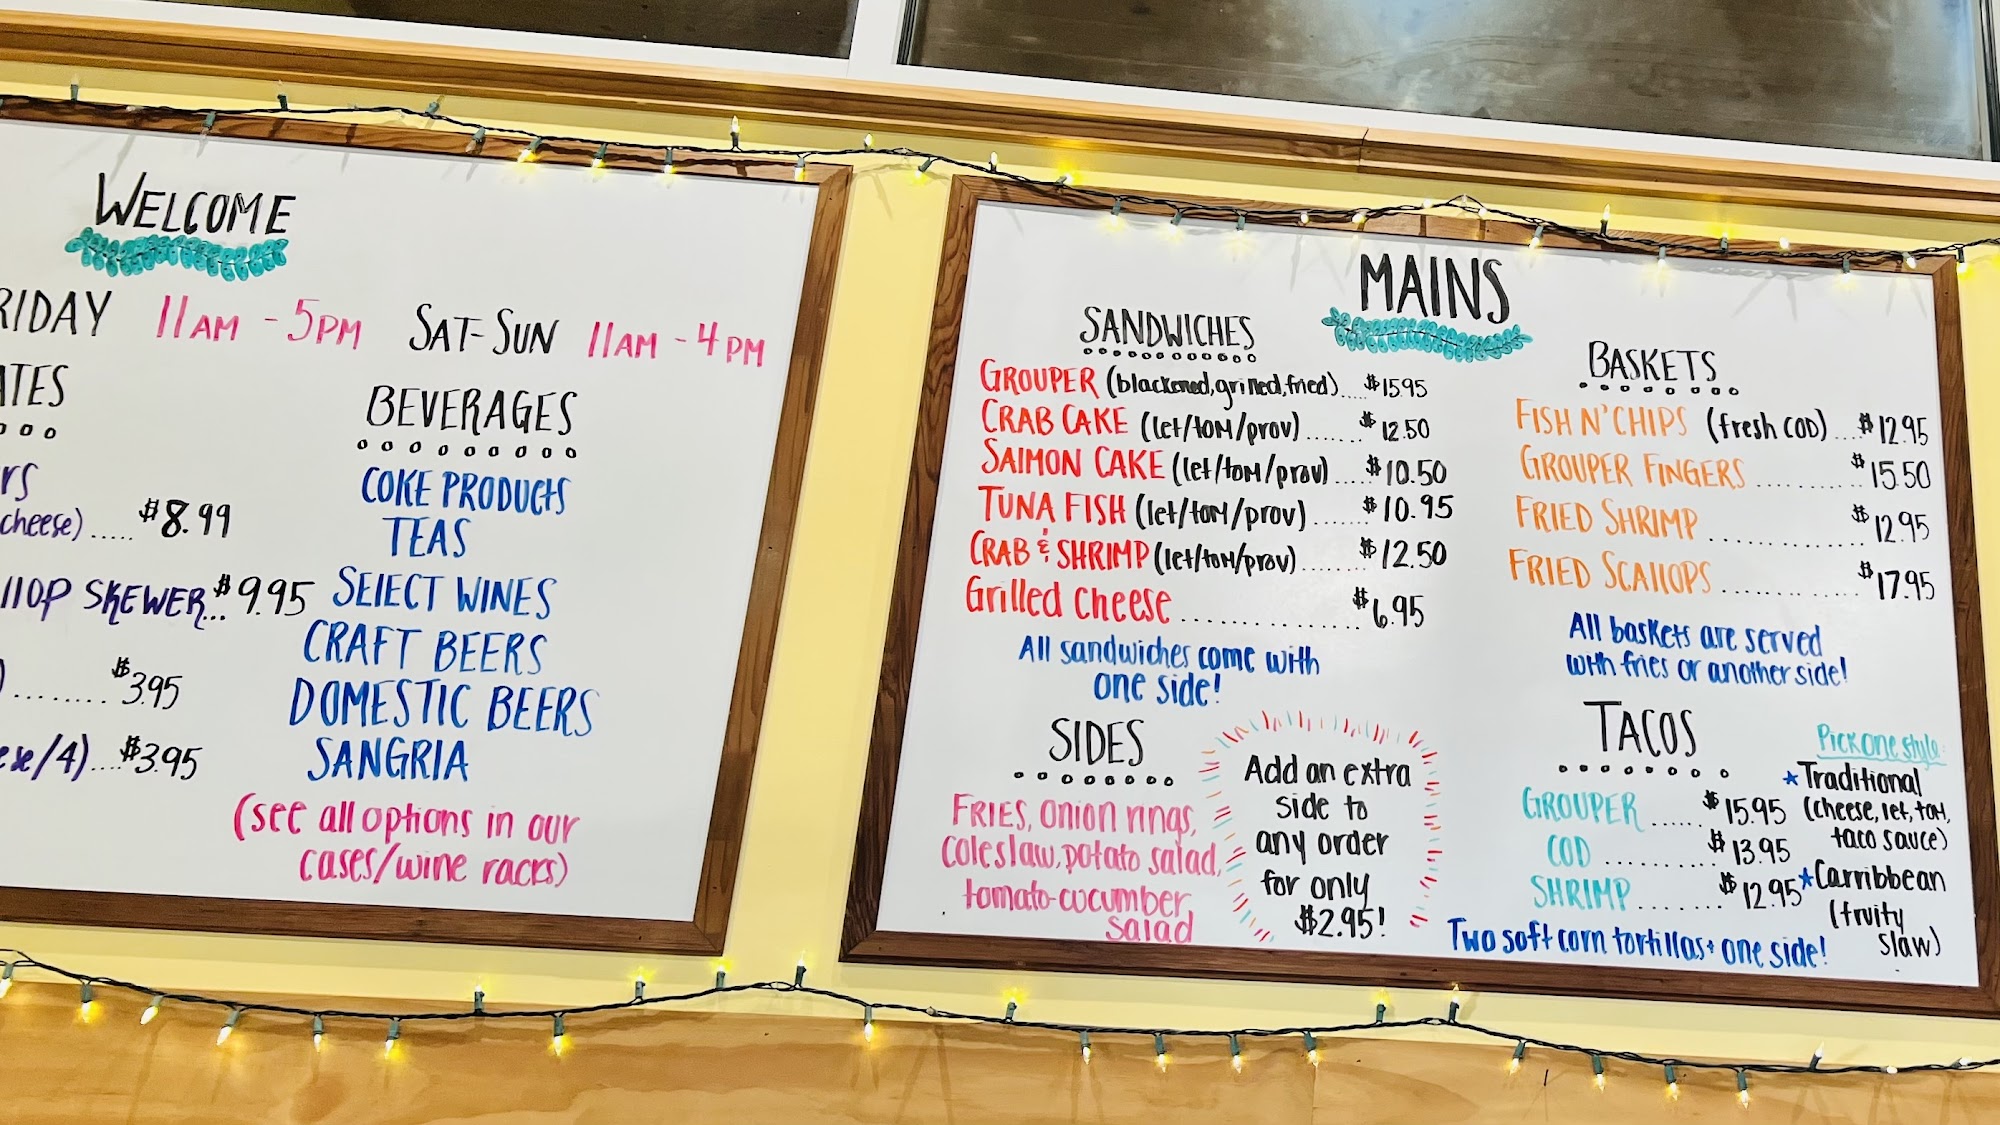 WELCOME
RIDAY 11AM - 5PM SAT-SUN 11AM - 4PM
ATES
rs
cheese)..... $8.99
llOP SKEWER... $9.95
)........ $3.95
ese/4).... $3.95
BEVERAGES
COKE PRODUCTS
TEAS
SELECT WINES
CRAFT BEERS
DOMESTIC BEERS
SANGRIA
(see all options in our
cases/wine racks)
MAINS
SANDWICHES
GROUPER (blackened, grilled, fried).... $15.95
CRAB CAKE (let/tom/prov)....... $12.50
SALMON CAKE (let/tom/prov).... $10.50
TUNA FISH (let/tom/prov)...... $10.95
CRAB & SHRIMP (let/tom/prov)....... $12.50
Grilled cheese .............. $6.95
All sandwiches come with
one side!
SIDES
FRIES, onion rings,
coleslaw, potato salad,
tomato-cucumber
salad
Add an extra
side to
any order
for only
$2.95!
BASKETS
FISH N' CHIPS (fresh COD)... $12.95
GROUPER FINGERS .......... $15.50
FRIED SHRIMP .............. $12.95
FRIED SCALLOPS ............. $17.95
All baskets are served
with fries or another side!
TACOS
GROUPER ...... $15.95
COD .......... $13.95
SHRIMP ........ $12.95
Two soft corn tortillas + one side!
Pick one style:
*Traditional
(cheese, let, tom,
taco sauce)
*Carribbean
(fruity
slaw)